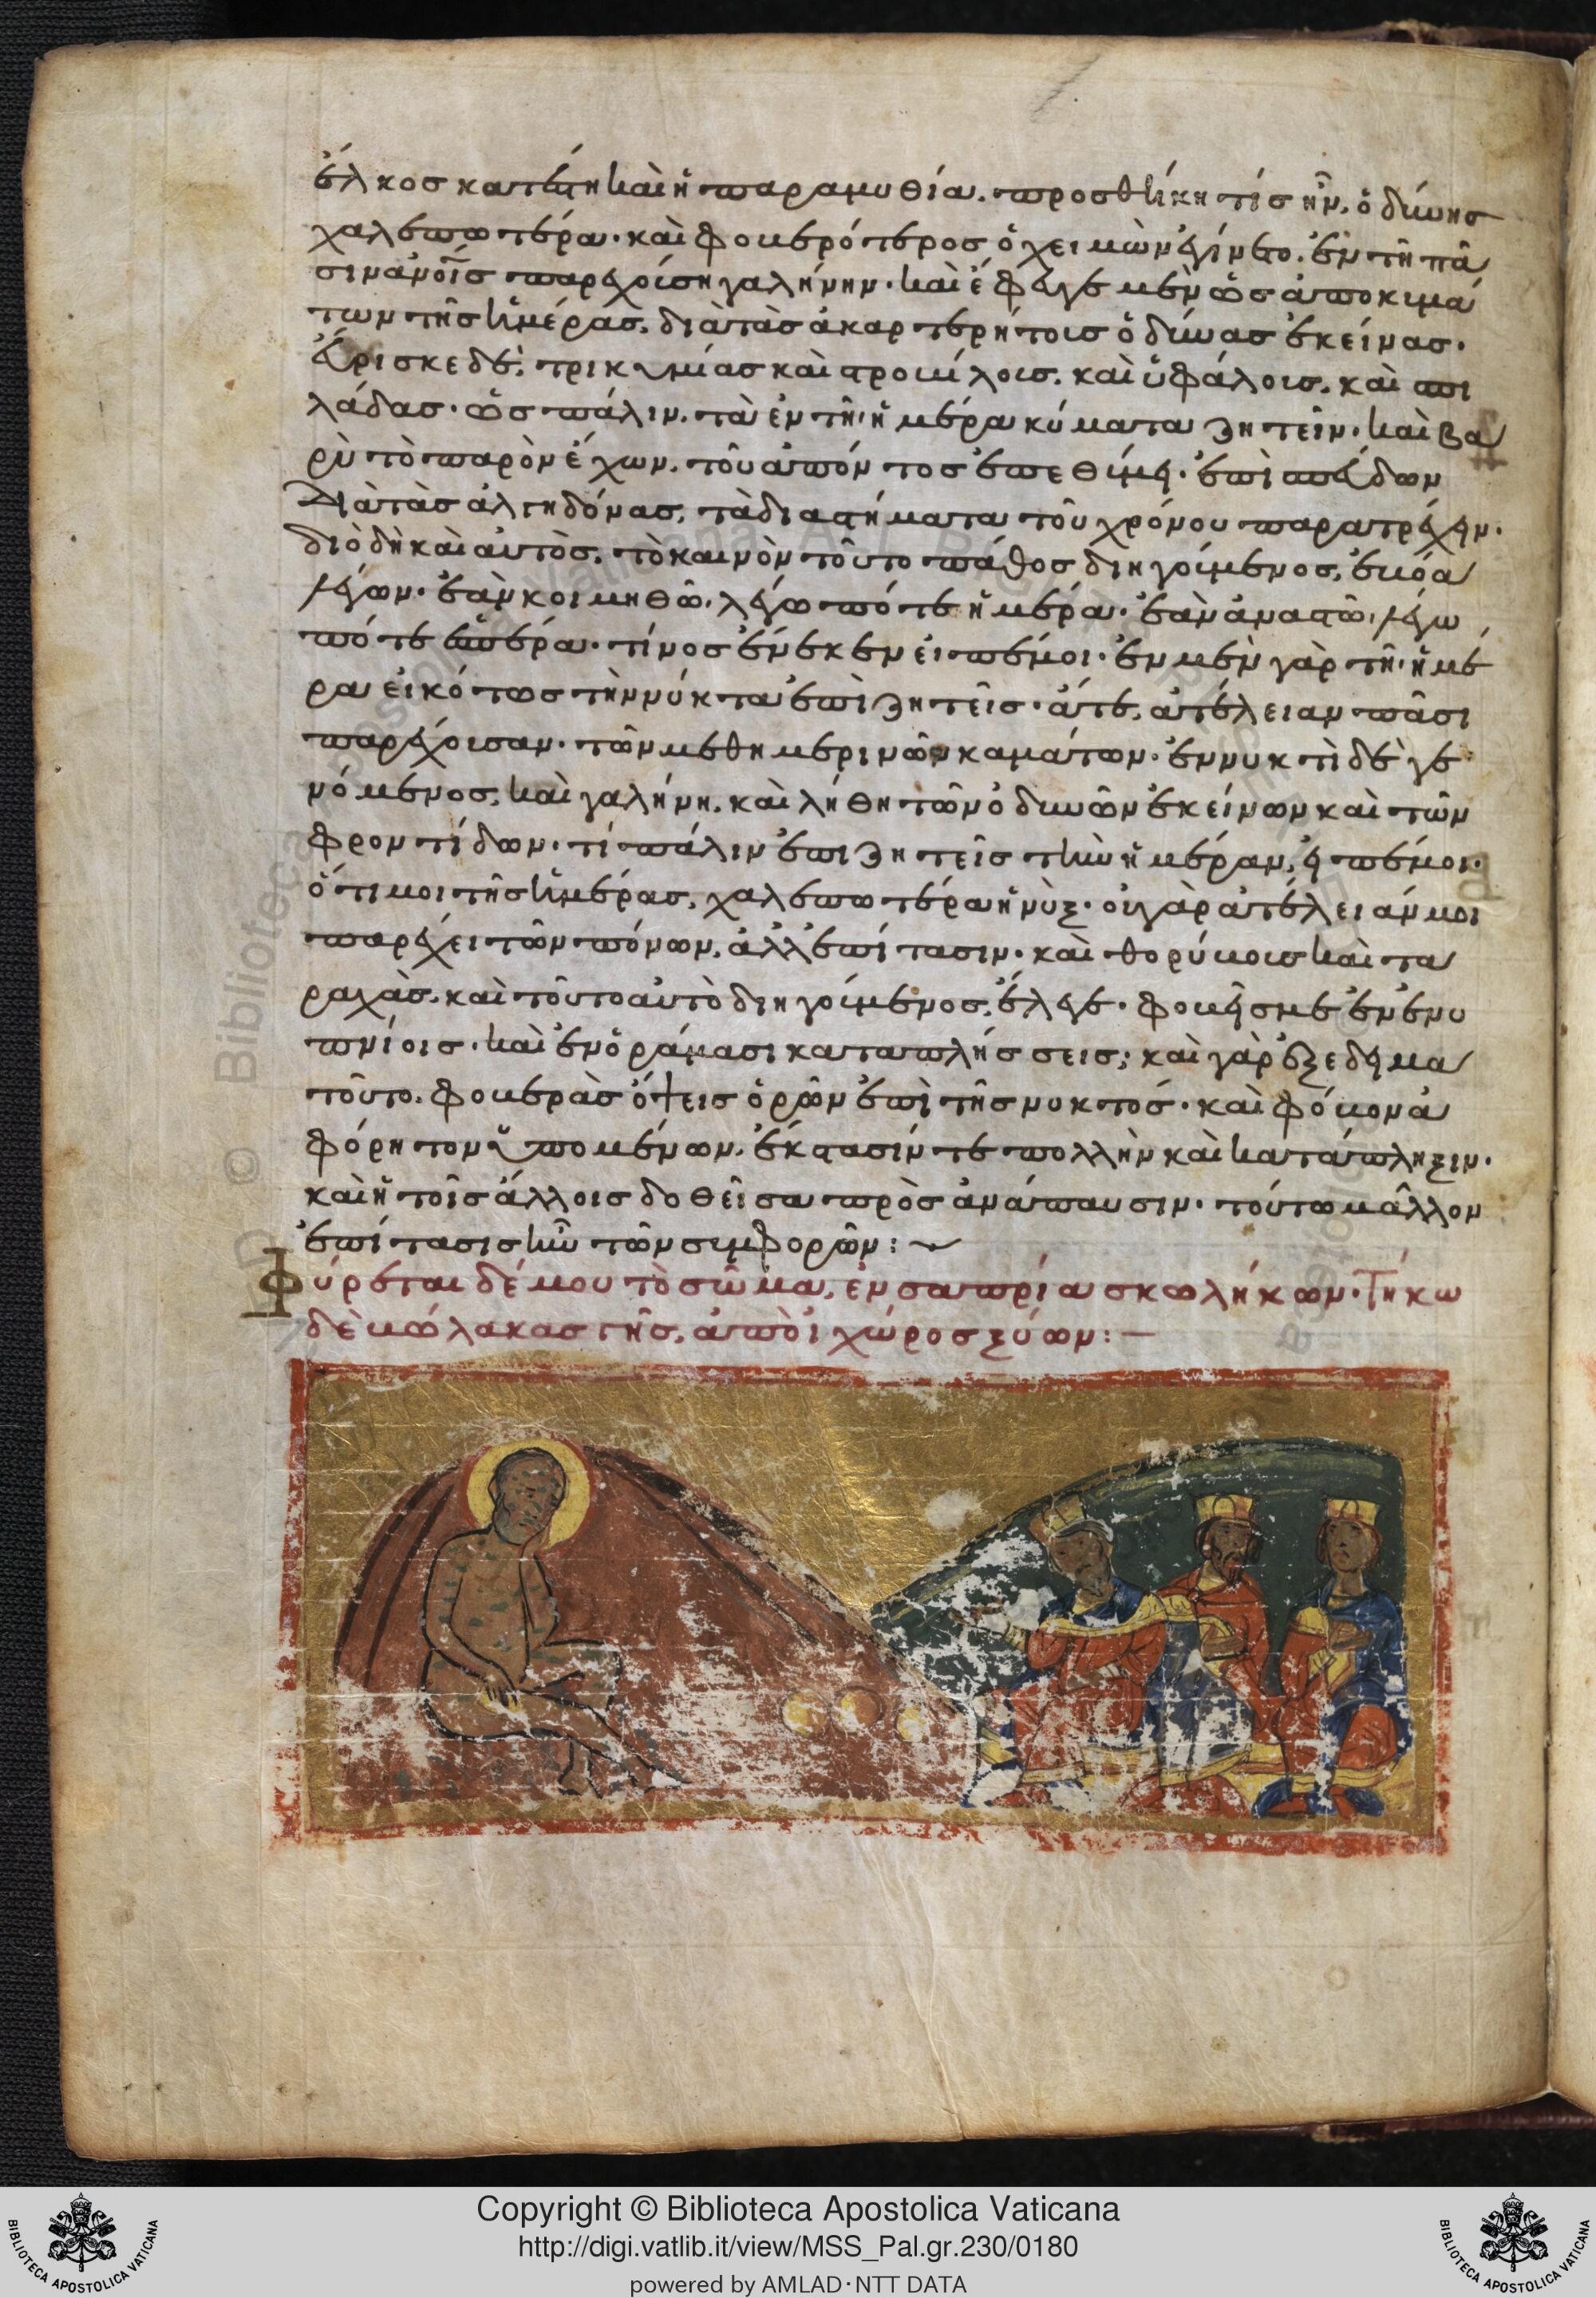 ἕλκος κατέστη καὶ ἡ παραμυθία. προσθήκη τίς ἦν, ὀδύνης
χαλεπωτέρα. καὶ φοβερότερος ὁ χειμὼν ἐγίνετο. ἐν τῆ πᾶ
σιν ἀν̅ο̅ι̅ς παρεχούση γαλήνην. καὶ ἔφευγε μὲν ὡς ἀπὸ κυμά
των τῆς ἡμέρας, διὰ τὰς ἀκαρτερήτους ὀδύνας ἐκείνας.
εὕρισκε δὲ, τρικυμίας καὶ προβόλους. καὶ ὑφάλους. καὶ σπι
λάδας. ὡς πάλιν, τὰ ἐν τῆ ἡμέρα κύματα ζητεῖν. καὶ βα
ρὺ τὸ παρὸν ἔχων. τοῦ ἀπόντος ἐπεθύμει. ἐπισπεύδων
διὰ τὰς ἀλγηδόνας, τὰ διαστήματα τοῦ χρόνου παρατρέχειν.
διὸ δὴ καὶ αὐτὸς, τὸ καινὸν τοῦτο πάθος διηγούμενος, ἐβόα
λέγων. ἐὰν κοιμηθῶ, λέγω πότε ἡμέρα. ἐὰν ἀναστῶ, λέγω
πότε ἑσπέρα. τίνος ἕνεκεν εἰπέ μοι. ἐν μὲν γὰρ τῆ ἡμέ
ρα εἰκότως τὴν νύκτα ἐπιζητεῖς. ἅτε, ἀτέλειαν πᾶσι
παρέχουσαν. τῶν μεθημερινῶν καμάτων. ἐν νυκτὶ δὲ γε
νόμενος, καὶ γαλήνη. καὶ λήθη τῶν ὀδυνῶν ἐκείνων καὶ τῶν
φροντίδων. τί πάλιν ἐπιζητεῖς τὴν ἡμέραν, εἰπέ μοι.
ὅτι μοι τῆς ἡμέρας, χαλεπωτέρα ἡ νύξ. οὐ γὰρ ἀτέλειάν μοι
παρέχει τῶν πόνων, ἀλλ' ἐπίτασιν. καὶ θορύβους καὶ τα
ραχὰς. καὶ τοῦτο αὐτὸ διηγούμενος, ἔλεγε. φοβεῖς με ἐν ἐνυ
πνίοις. καὶ ἐν ὁράμασι καταπλήσσεις; καὶ γὰρ ἐξεδείμα
τοῦτο. φοβερὰς ὄψεις ὁρῶν ἐπὶ τῆς νυκτός. καὶ φόβον ἀ
φόρητον ὑπομένων. ἔκστασίν τε πολλὴν καὶ κατάπληξιν.
καὶ ἡ τοῖς ἄλλοις δοθεῖσα πρὸς ἀνάπαυσιν. τούτω μᾶλλον
ἐπίτασις ἦν τῶν συμφορῶν:
Φύρεται δέ μου τὸ σῶμα, ἐν σαπρία σκωλήκων. Τήκω
δὲ βώλακας γῆς, ἀπὸ ἰχῶρος ξύων:
Copyright © Biblioteca Apostolica Vaticana
http://digi.vatlib.it/view/MSS_Pal.gr.230/0180
powered by AMLAD·NTT DATA
BIBLIOTECA APOSTOLICA VATICANA
BIBLIOTECA APOSTOLICA VATICANA